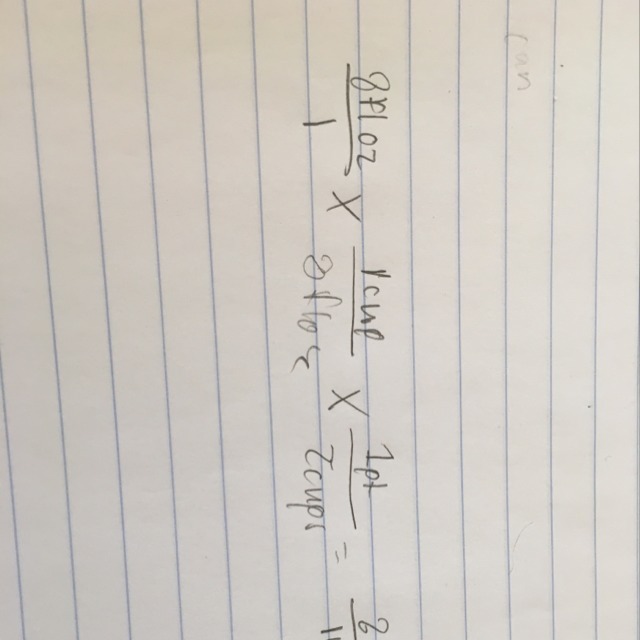 8 fl oz / 1 X 1 cup / 8 fl oz X 1 pt / 2 cups = 8 / 1